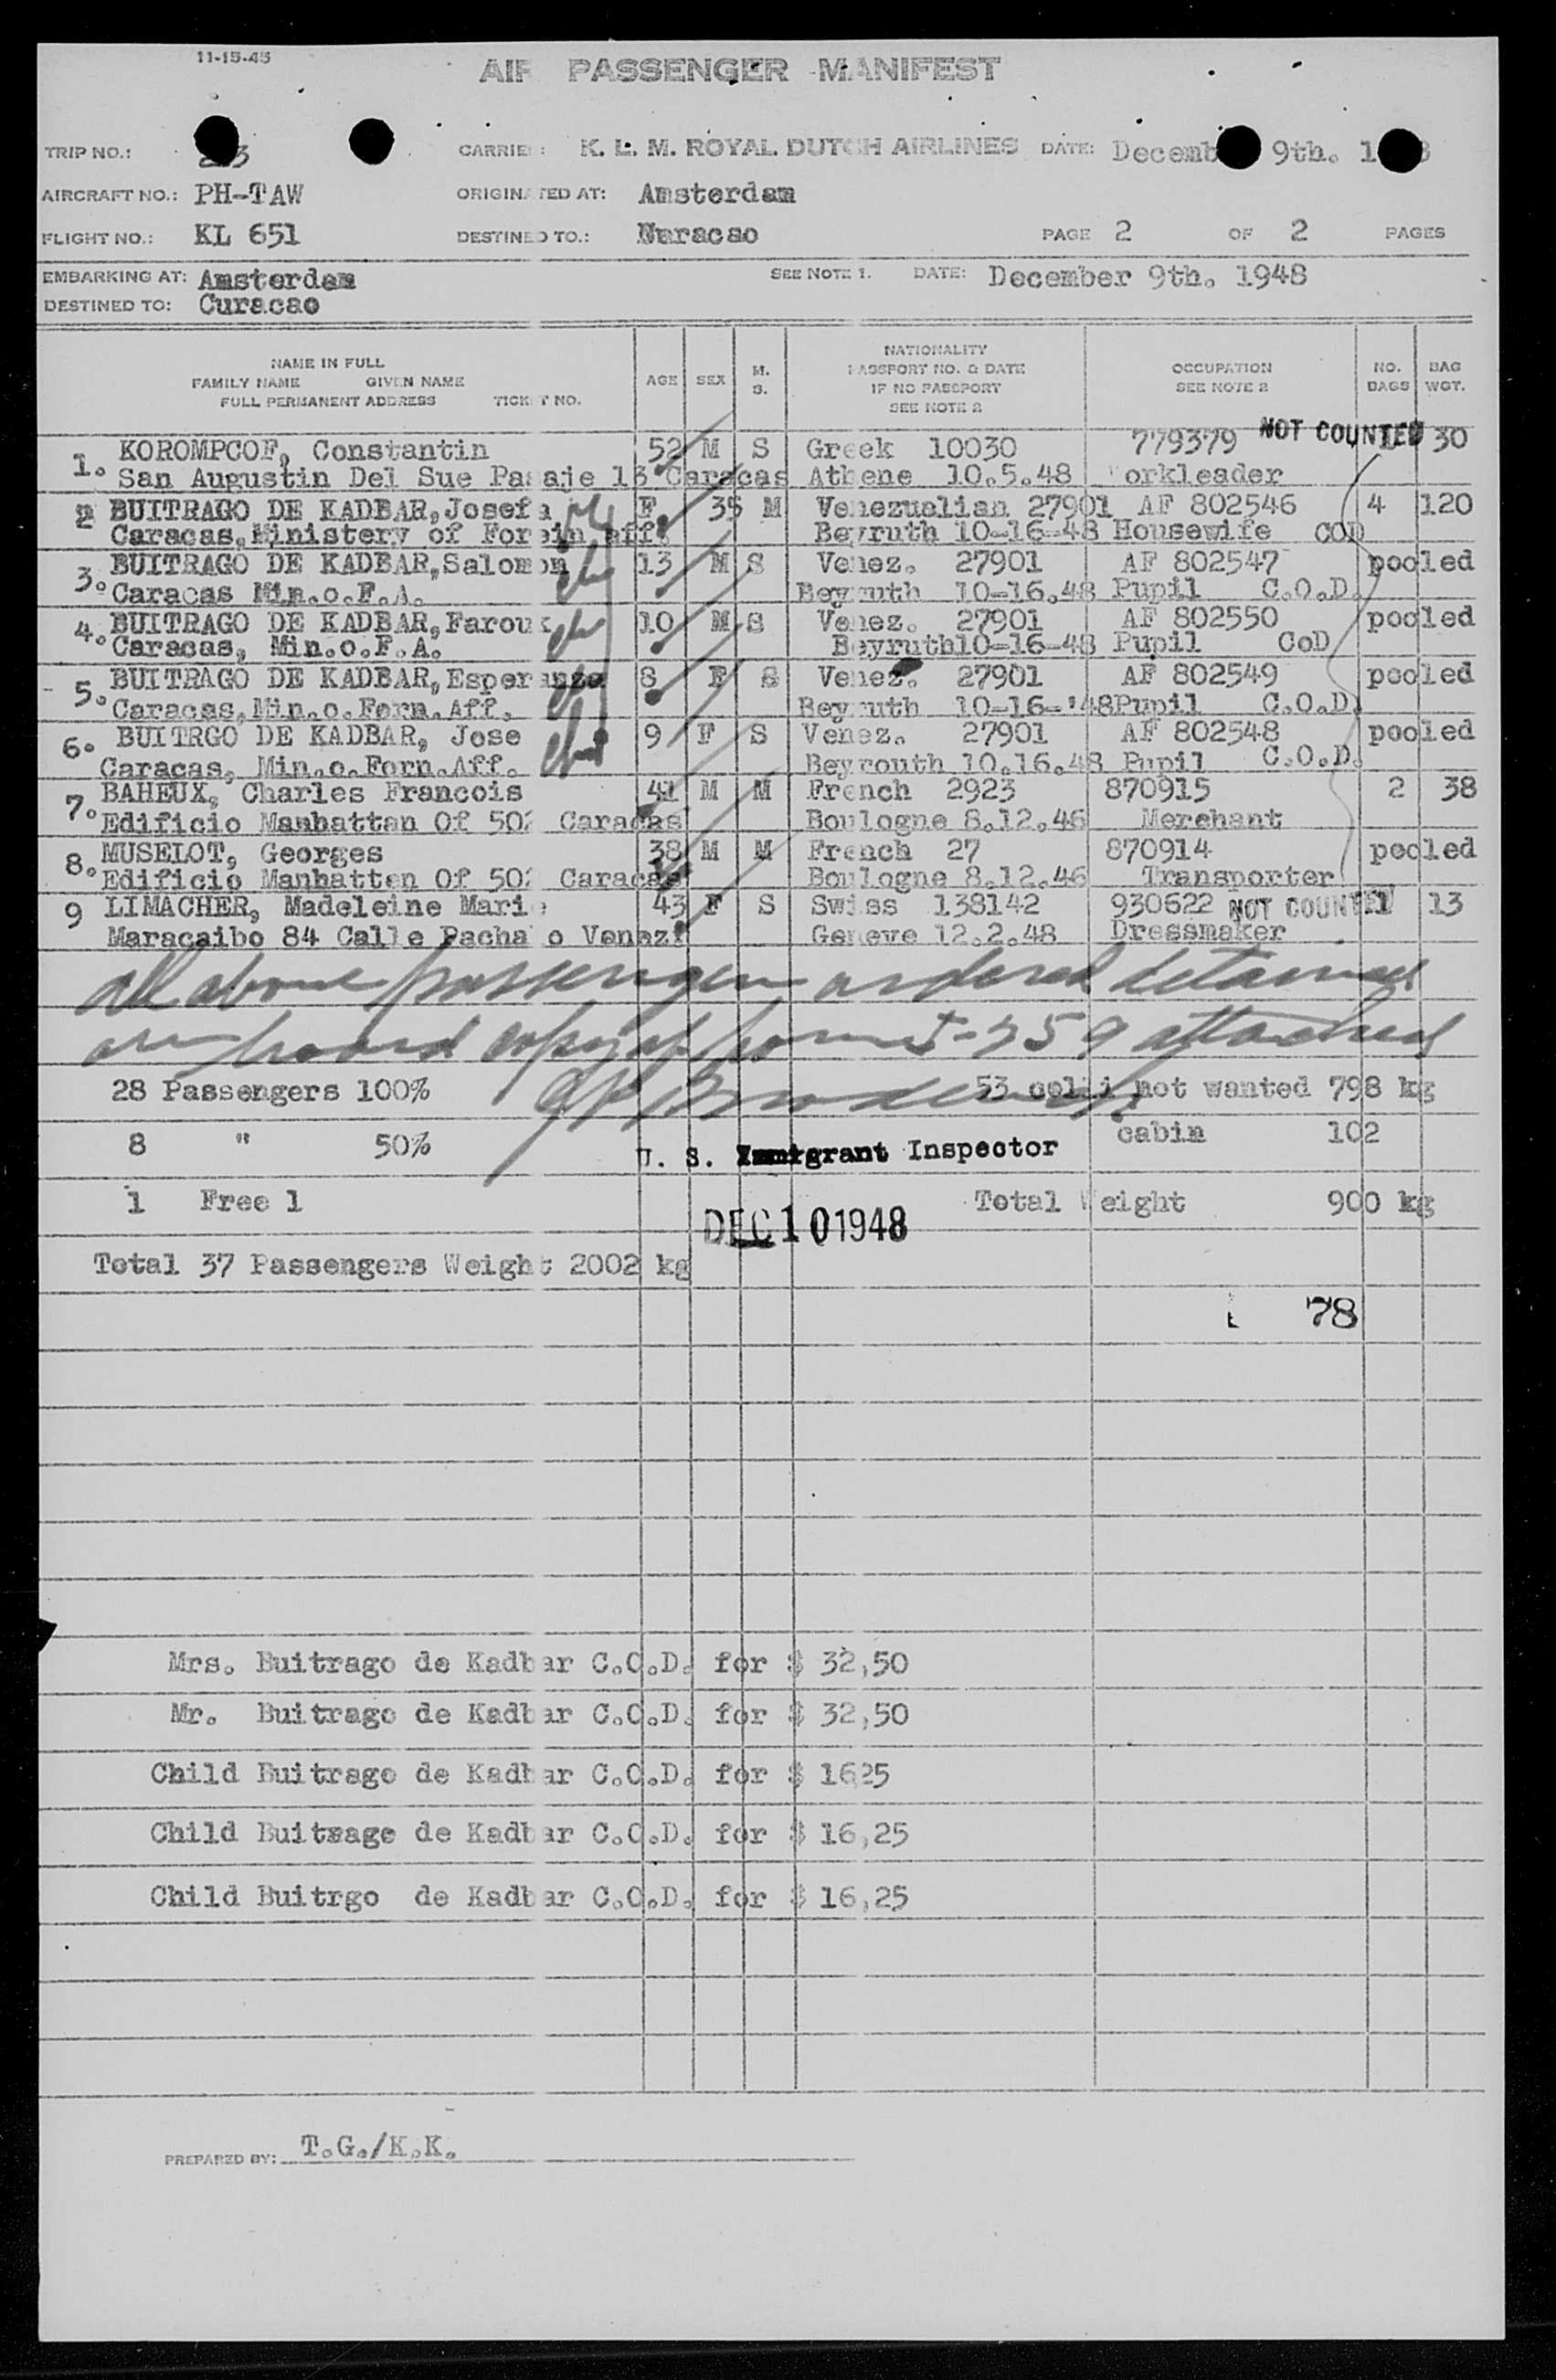 11-15-45
AIR PASSENGER MANIFEST
TRIP NO.: CARRIER: K. L. M. ROYAL DUTCH AIRLINES DATE: December 9th.
AIRCRAFT NO.: PH-TAW ORIGINATED AT: Amsterdam
FLIGHT NO.: KL 651 DESTINED TO.: Curacao PAGE 2 OF 2 PAGES
EMBARKING AT: Amsterdam SEE NOTE 1. DATE: December 9th. 1948
DESTINED TO: Curacao
NAME IN FULL AGE SEX M. S. NATIONALITY OCCUPATION NO. BAG
FAMILY NAME GIVEN NAME PASSPORT NO. & DATE SEE NOTE 2 BAGS WGT.
FULL PERMANENT ADDRESS TICKET NO. IF NO PASSPORT
SEE NOTE 2
1. KOROMPCOF, Constantin 52 M S Greek 10030 779379 NOT COUNTED 30
San Augustin Del Sue Pasaje 13 Caracas Athene 10.5.48 orkleader
2 BUITRAGO DE KADBAR,Josefa F 35 M Venezualian 27901 AF 802546 4 120
Caracas,Ministery of Forein aff. Beyruth 10-16-48 Housewife COD
3. BUITRAGO DE KADBAR,Salomon 13 M S Venez. 27901 AF 802547 pooled
Caracas Min.o.F.A. Beyruth 10-16.48 Pupil C.O.D.
4. BUITRAGO DE KADBAR,Farouk 10 M S Venez. 27901 AF 802550 pooled
Caracas, Min.o.F.A. Beyruth10-16-48 Pupil CoD
5. BUITRAGO DE KADBAR,Esperanza 8 F S Venez. 27901 AF 802549 pooled
Caracas,Min.o.Forn.Aff. Beyruth 10-16-'48Pupil C.O.D.
6. BUITRGO DE KADBAR, Jose 9 F S Venez. 27901 AF 802548 pooled
Caracas, Min.o.Forn.Aff. Beyrouth 10.16.48 Pupil C.O.D.
7. BAHEUX, Charles Francois 41 M M French 2923 870915 2 38
Edificio Manhattan Of 502 Caracas Boulogne 8.12.46 Merchant
8. MUSELOT, Georges 38 M M French 27 870914 pooled
Edificio Manhatten Of 502 Caracas Boulogne 8.12.46 Transporter
9 LIMACHER, Madeleine Marie 43 F S Swiss 138142 930622 NOT COUNTED 1 13
Maracaibo 84 Calle Pacha o Venaz. Geneve 12.2.48 Dressmaker
all above passengers ordered detained
on board copy of form I-259 attached
28 Passengers 100% 53 colli not wanted 798 kg
8 " 50% cabin 102
U. S. Immigrant Inspector
1 Free 1 Total Weight 900 kg
DEC 10 1948
Total 37 Passengers Weight 2002 kg
78
Mrs. Buitrago de Kadbar C.O.D. for $ 32,50
Mr. Buitrago de Kadbar C.O.D. for $ 32,50
Child Buitrago de Kadbar C.O.D. for $ 1625
Child Buitrago de Kadbar C.O.D. for $ 16,25
Child Buitrgo de Kadbar C.O.D. for $ 16,25
PREPARED BY: T.G./K.K.